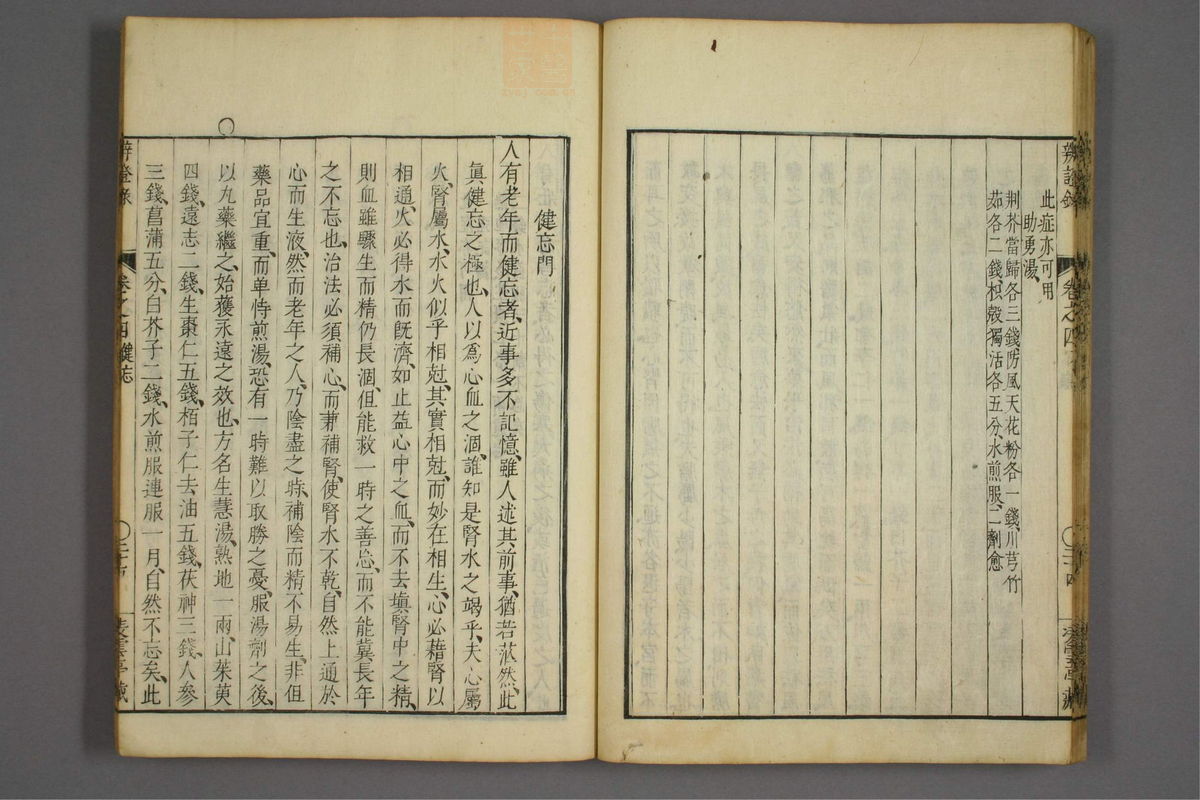 辨證錄 卷之四
此症亦可用
助勇湯
荆芥當歸各三錢防風天花粉各一錢川芎竹
茹各二錢枳殼獨活各五分水煎服二劑愈
健忘門
人有老年而健忘者近事多不記憶雖人述其前事猶若茫然此
眞健忘之極也人以爲心血之涸誰知是腎水之竭乎夫心屬
火腎屬水水火似乎相尅其實相尅而妙在相生心必藉腎以
相通火必得水而旣濟如止益心中之血而不去塡腎中之精
則血雖驟生而精仍長涸但能救一時之善忘而不能冀長年
之不忘也治法必須補心而兼補腎使腎水不乾自然上通於
心而生液然而老年之人乃陰盡之時補陰而精不易生非但
藥品宜重而單恃煎湯恐有一時難以取勝之憂服湯劑之後
以丸藥繼之始獲永遠之效也方名生慧湯熟地一兩山茱萸
四錢遠志二錢生棗仁五錢栢子仁去油五錢茯神三錢人參
三錢菖蒲五分白芥子二錢水煎服連服一月自然不忘矣此
辨證錄 卷之四健忘